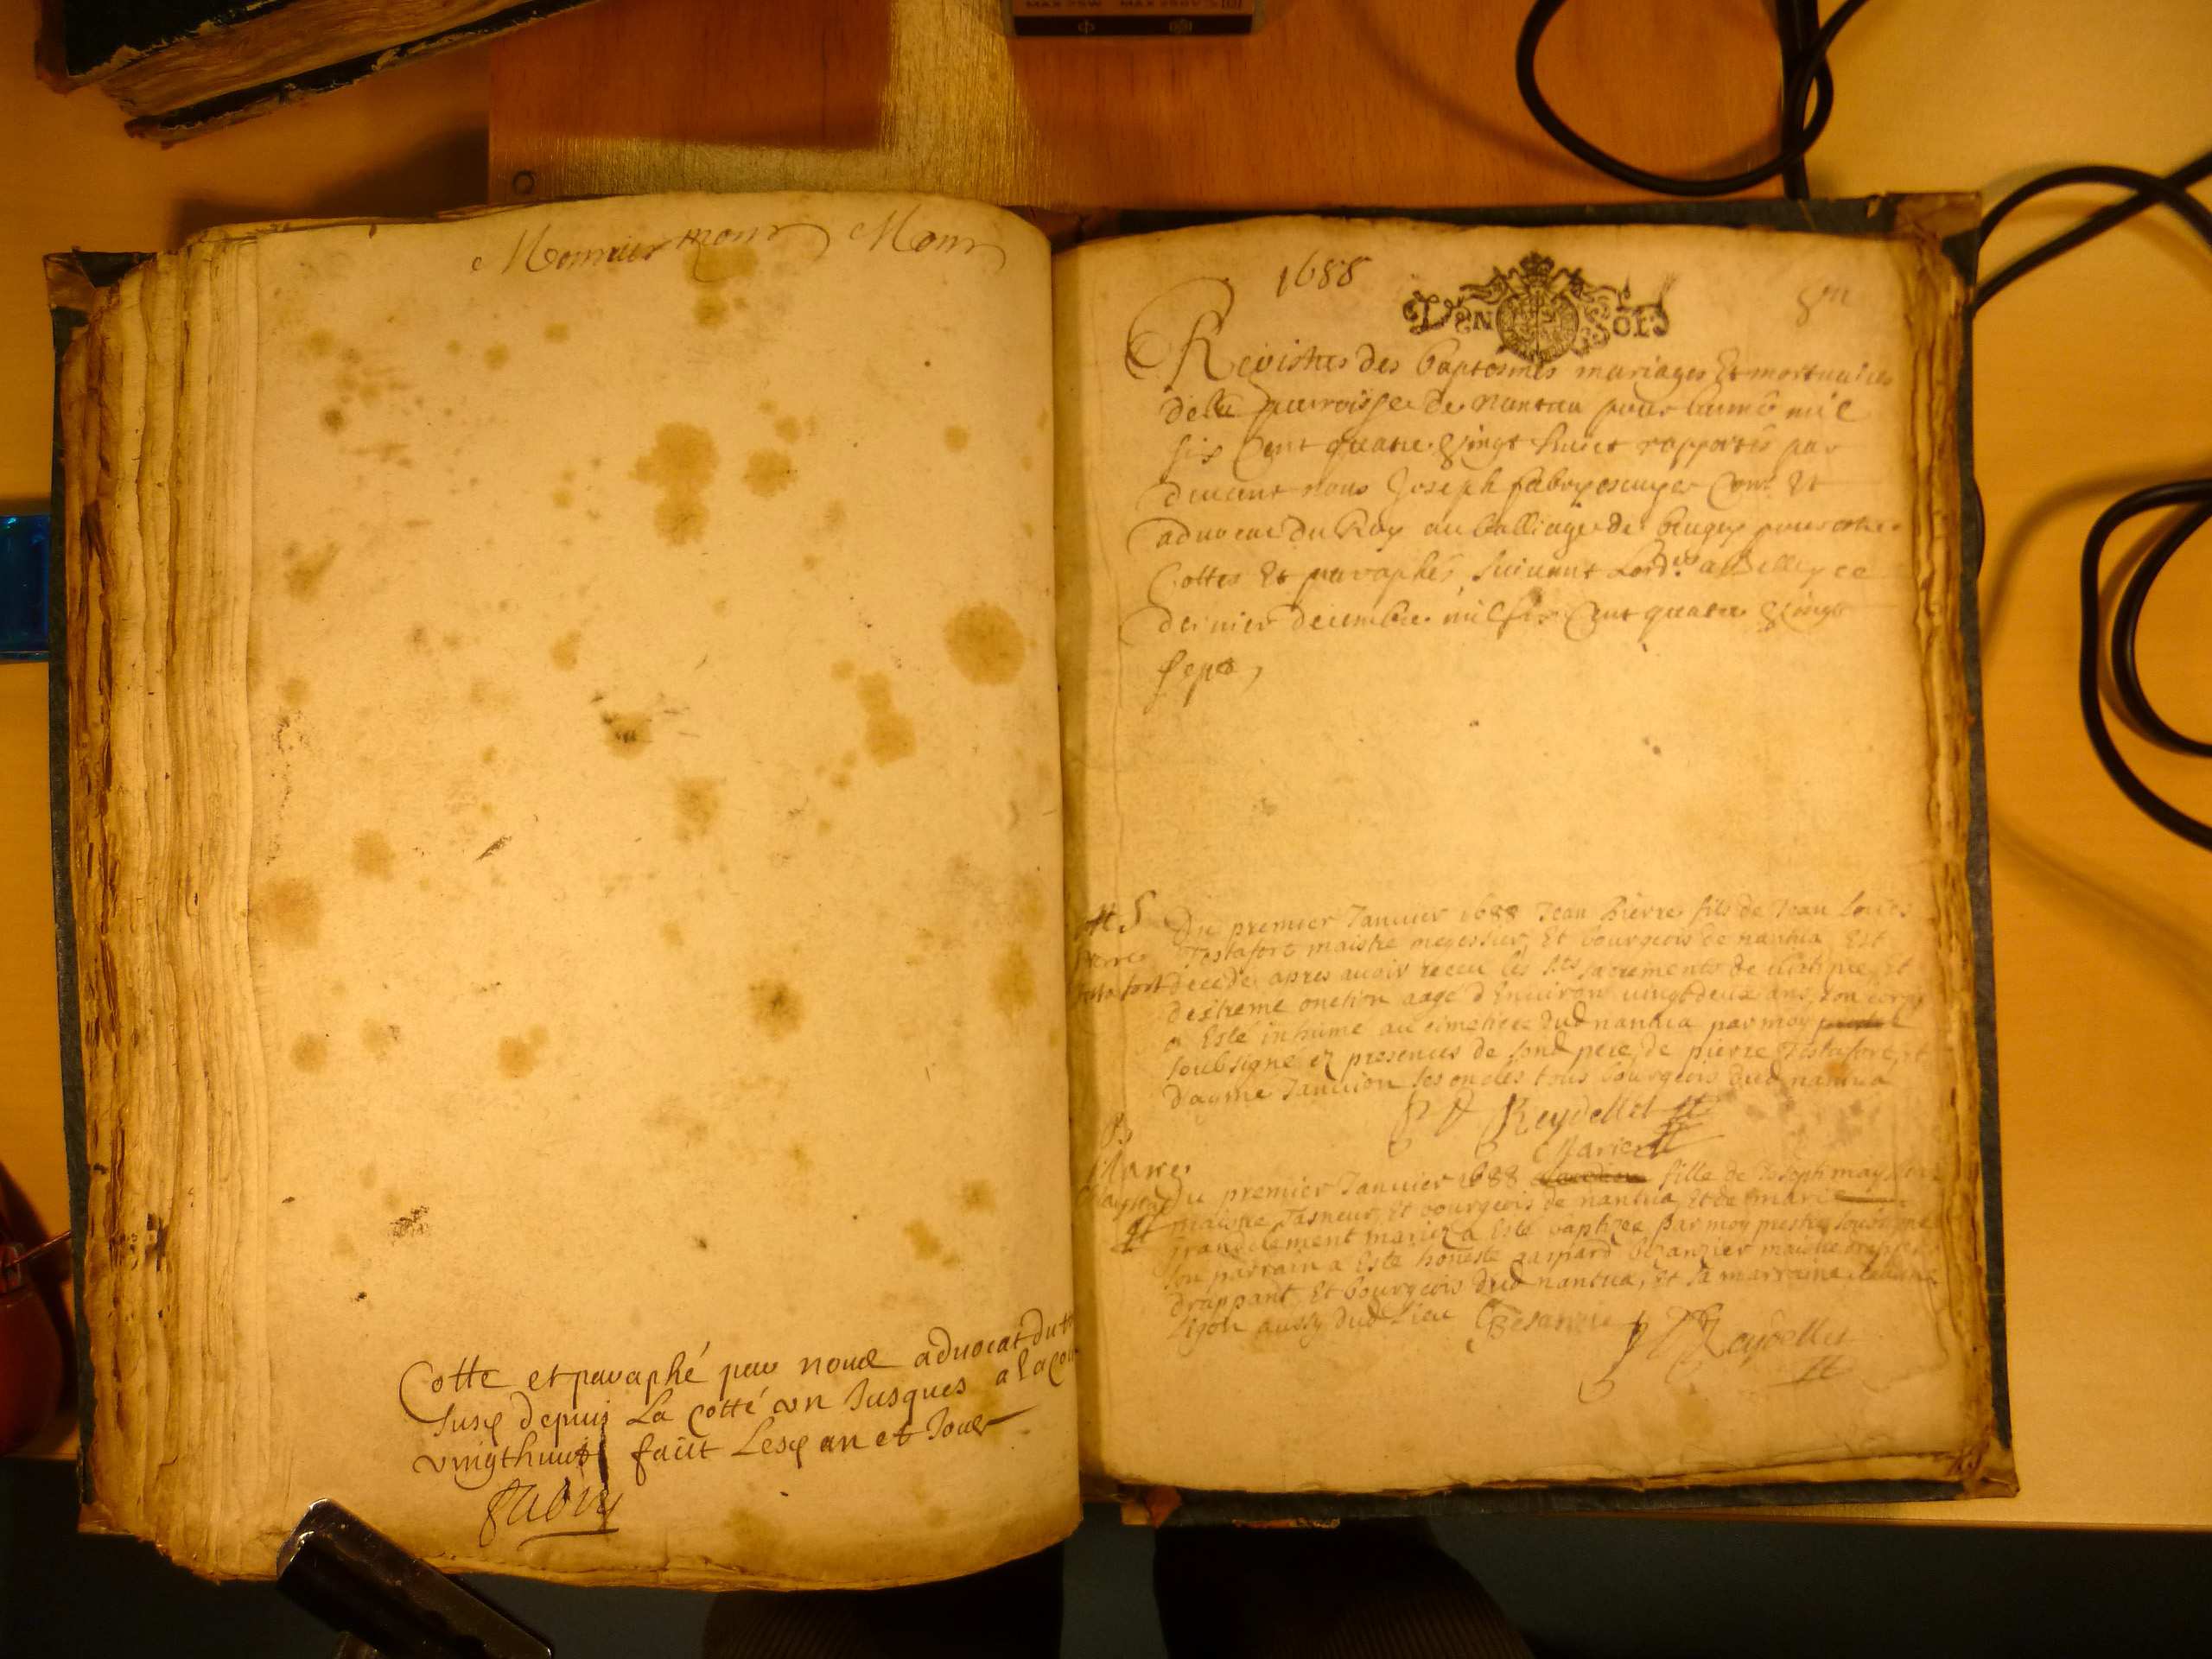 Monnier mour Mour
Cotte et paraphé par nous advocat du
susd depuis La cotté un Jusques a la
vingthuit faüt Lesd an et Jour
fabry
1688
DEN SOLS
Regisstres des baptesmes mariages Et mortuaires
de la parroisse de nantua pour lannee mil
six Cent quatre Vingt huict rapportés par
devant nous Joseph fabry escuyer Et
advocat du Roy au balliage de beugey pour estre
Cottes Et paraphés suivant Lord.ce a Belley ce
dernier decembre mil six Cent quatre Vingt
sept,
Du premier Januier 1688 Jean Pierre fils de Jean Louis
Testafort maistre megissier, Et bourgeois de nantua Est
decede apres auoir receu les Sts sacrements de
dextreme onction aagé d'Enuiron vingtdeux ans, son corps
a Esté inhumé au cimetiere dud nantua par moy
soubsigné Ez presences de sond pere, de pierre Testafort, et
dayme Januion ses oncles tous bourgeois dud nantua
Reydellet
B
Marie
Marie
Du premier Januier 1688 fille de Joseph
maistre Tasneur, et bourgeois de nantua Et de marie
grandclement mariez a Esté baptizee par moy prestre soubsigné
son parrain a Esté honeste gaspard bezanzier maistre
drappant Et bourgeois dud nantua, Et sa marraine
Ligoh aussy dud Lieu
Reydellet